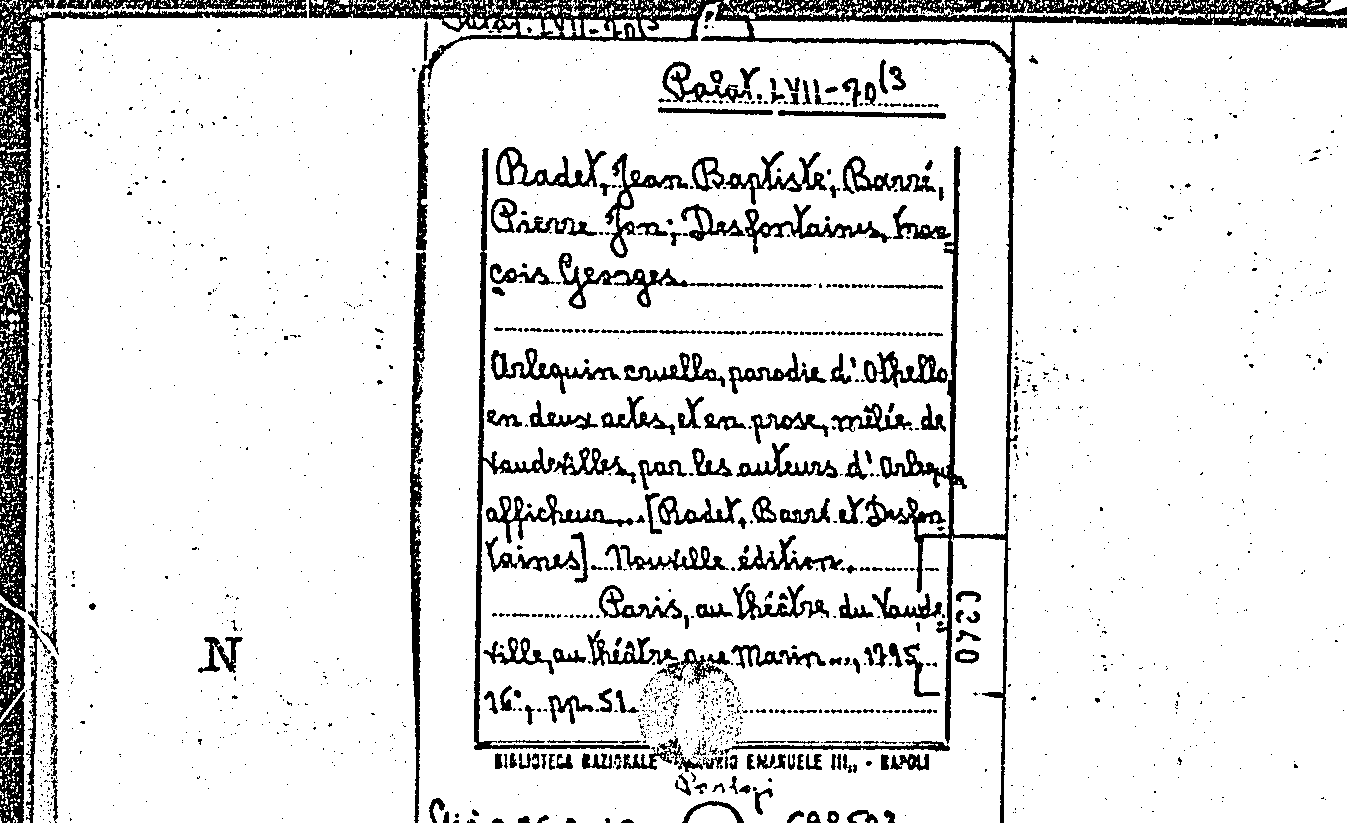 Palat. LVII-70(3
Palat. LVII-70(3
Radet, Jean Baptiste; Barré,
Pierre Jon; Desfontaines, Fran=
çois Georges.
Arlequin cruello, parodie d'Othello,
en deux actes, et en prose, mêlée de
vaudevilles, par les auteurs d'Arlequin
afficheur... [Radet, Barré et Desfon=
taines]. Nouvelle édition.
Paris, au théâtre du Vaude=
ville, au théâtre que Marin..., 1795.
16°, pp. 51.
0340
N
BIBLIOTECA NAZIONALE VITTORIO EMANUELE III,, - NAPOLI
698503